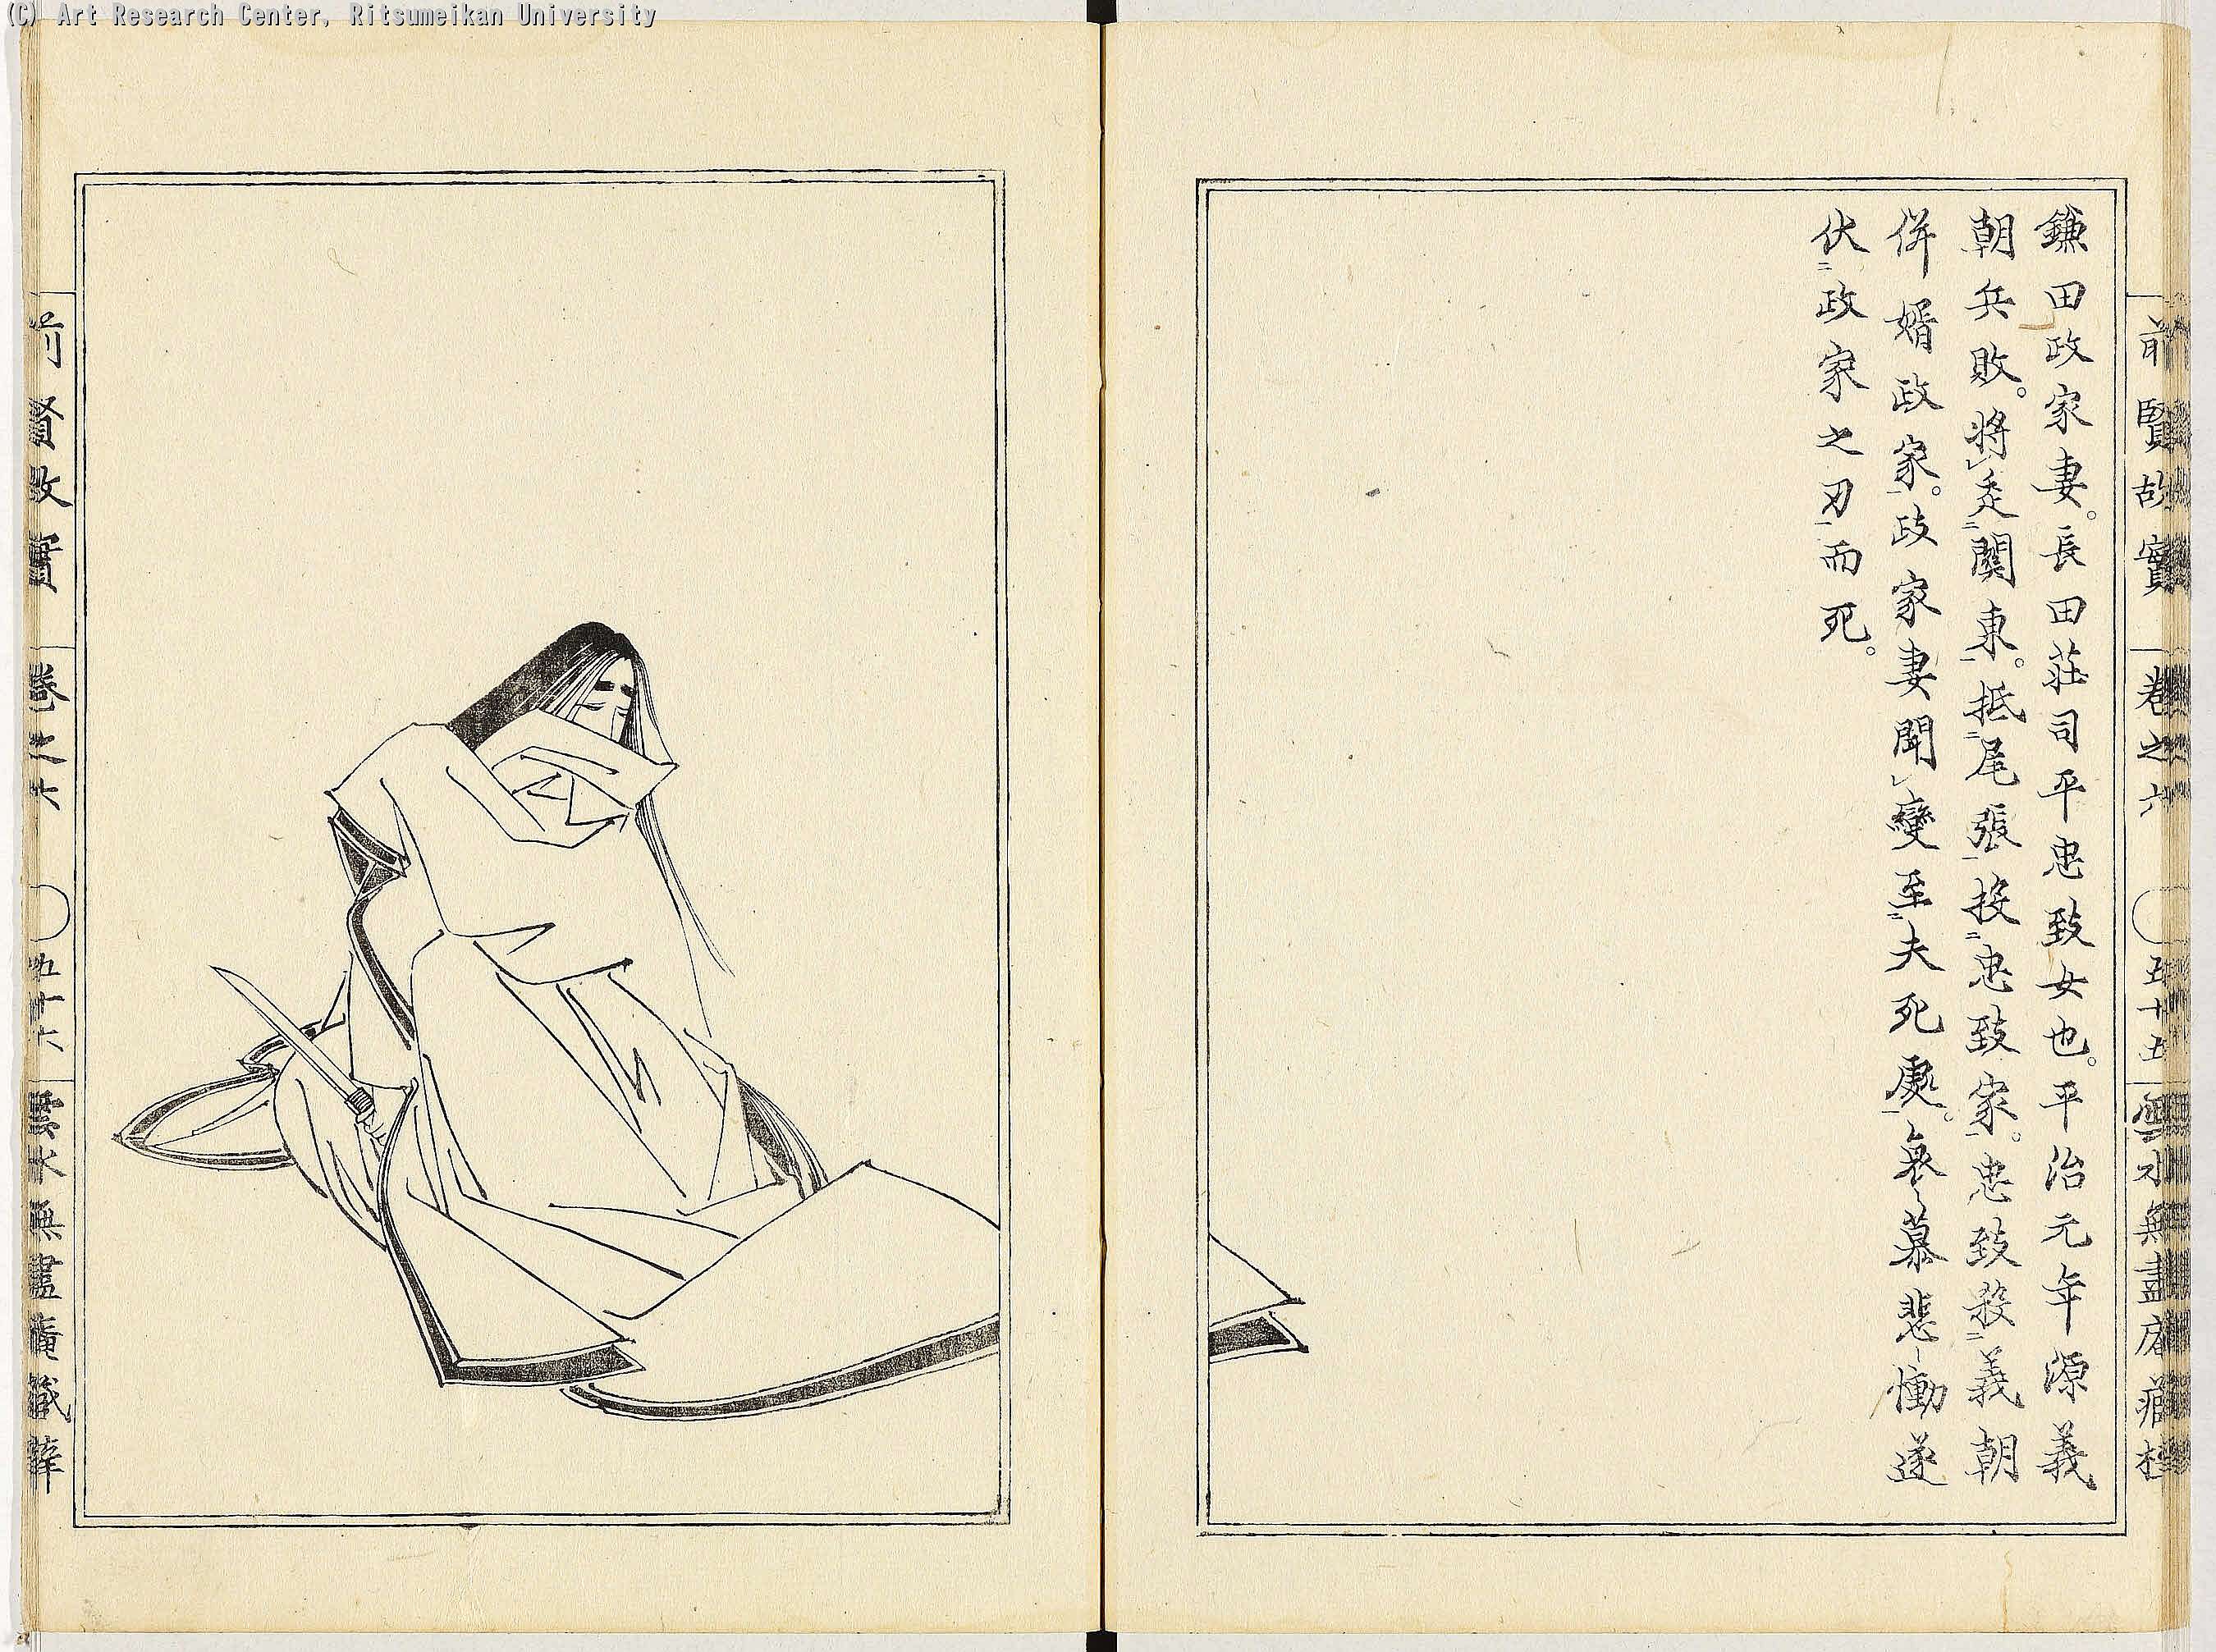 (C) Art Research Center, Ritsumeikan University
前賢故實 卷之六 〇五十五 雲水無盡庵藏梓
鎌田政家妻。長田莊司平忠致女也。平治元年源義
朝兵敗。將㆑走㆓關東㆒。抵㆓尾張㆒投㆓忠致家㆒。忠致殺㆓義朝
併婿政家㆒。政家妻聞㆑變至㆓夫死處㆒。哀慕悲慟遂
伏㆓政家之刃㆒而死。
前賢故實 卷之六 〇五十六 雲水無盡庵藏梓